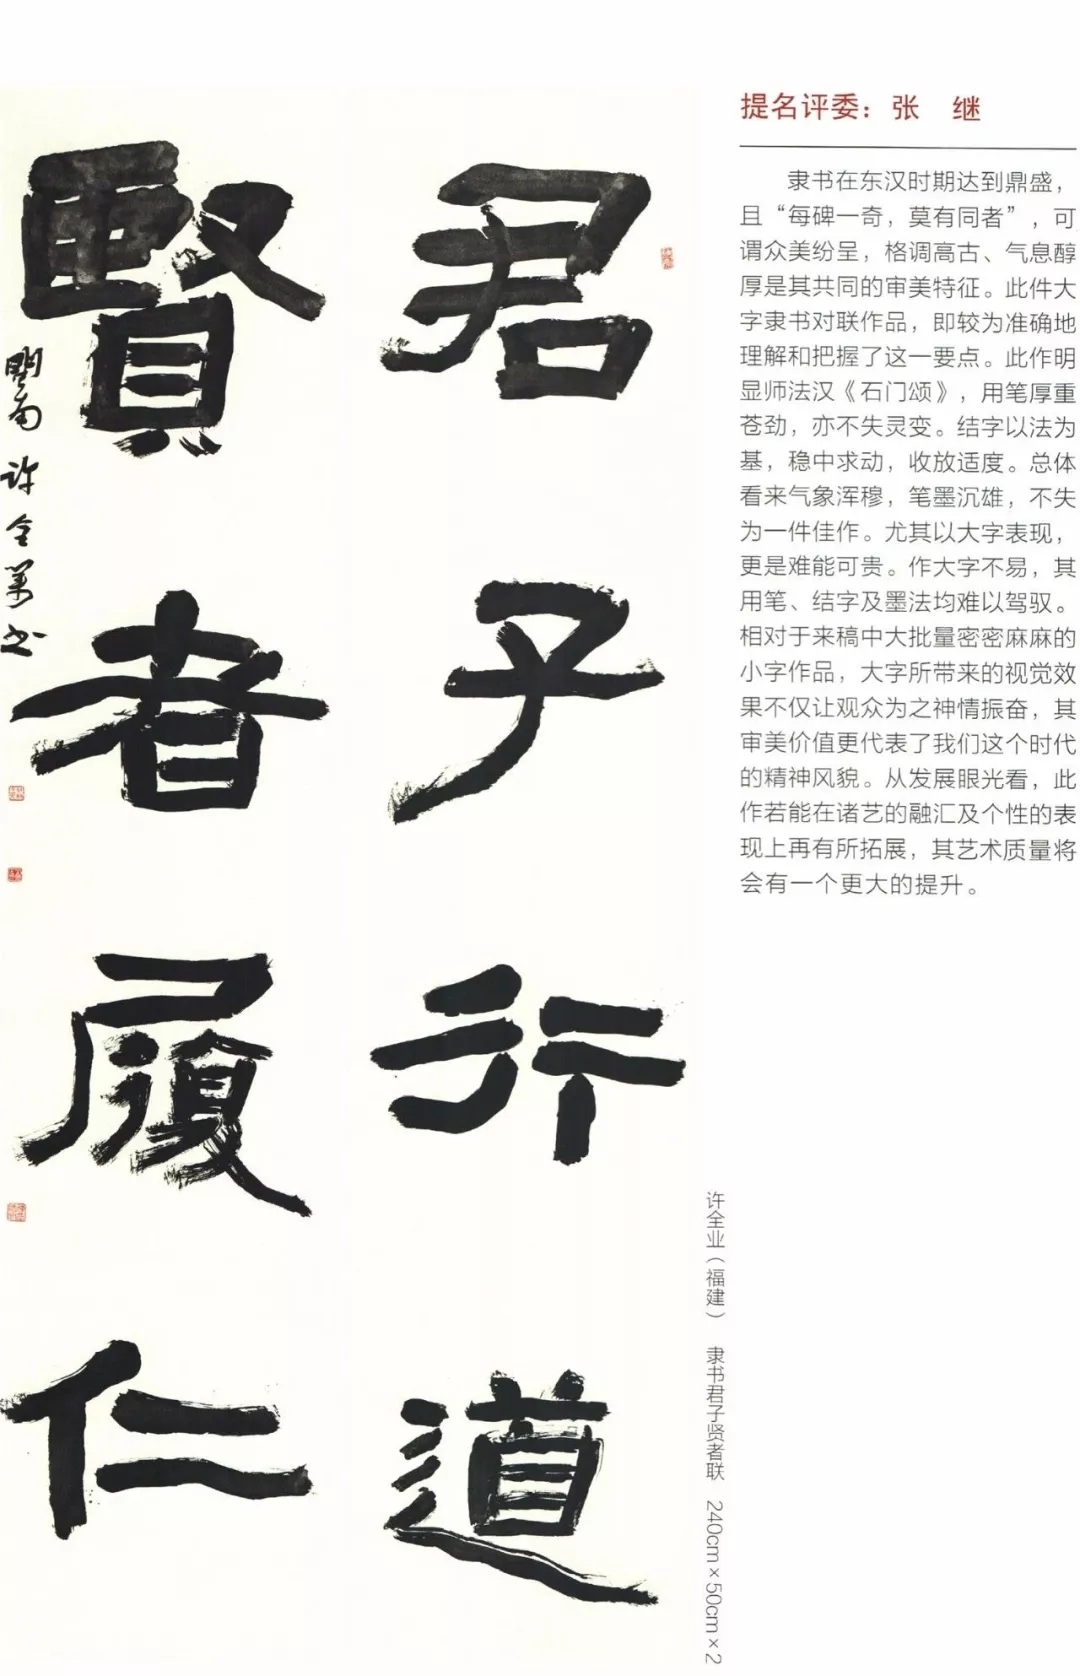 君子行道
賢者履仁
閩南許全業書
提名评委：张　继
隶书在东汉时期达到鼎盛，
且“每碑一奇，莫有同者”，可
谓众美纷呈，格调高古、气息醇
厚是其共同的审美特征。此件大
字隶书对联作品，即较为准确地
理解和把握了这一要点。此作明
显师法汉《石门颂》，用笔厚重
苍劲，亦不失灵变。结字以法为
基，稳中求动，收放适度。总体
看来气象浑穆，笔墨沉雄，不失
为一件佳作。尤其以大字表现，
更是难能可贵。作大字不易，其
用笔、结字及墨法均难以驾驭。
相对于来稿中大批量密密麻麻的
小字作品，大字所带来的视觉效
果不仅让观众为之神情振奋，其
审美价值更代表了我们这个时代
的精神风貌。从发展眼光看，此
作若能在诸艺的融汇及个性的表
现上再有所拓展，其艺术质量将
会有一个更大的提升。
许全业（福建）　隶书君子贤者联　240cm×50cm×2